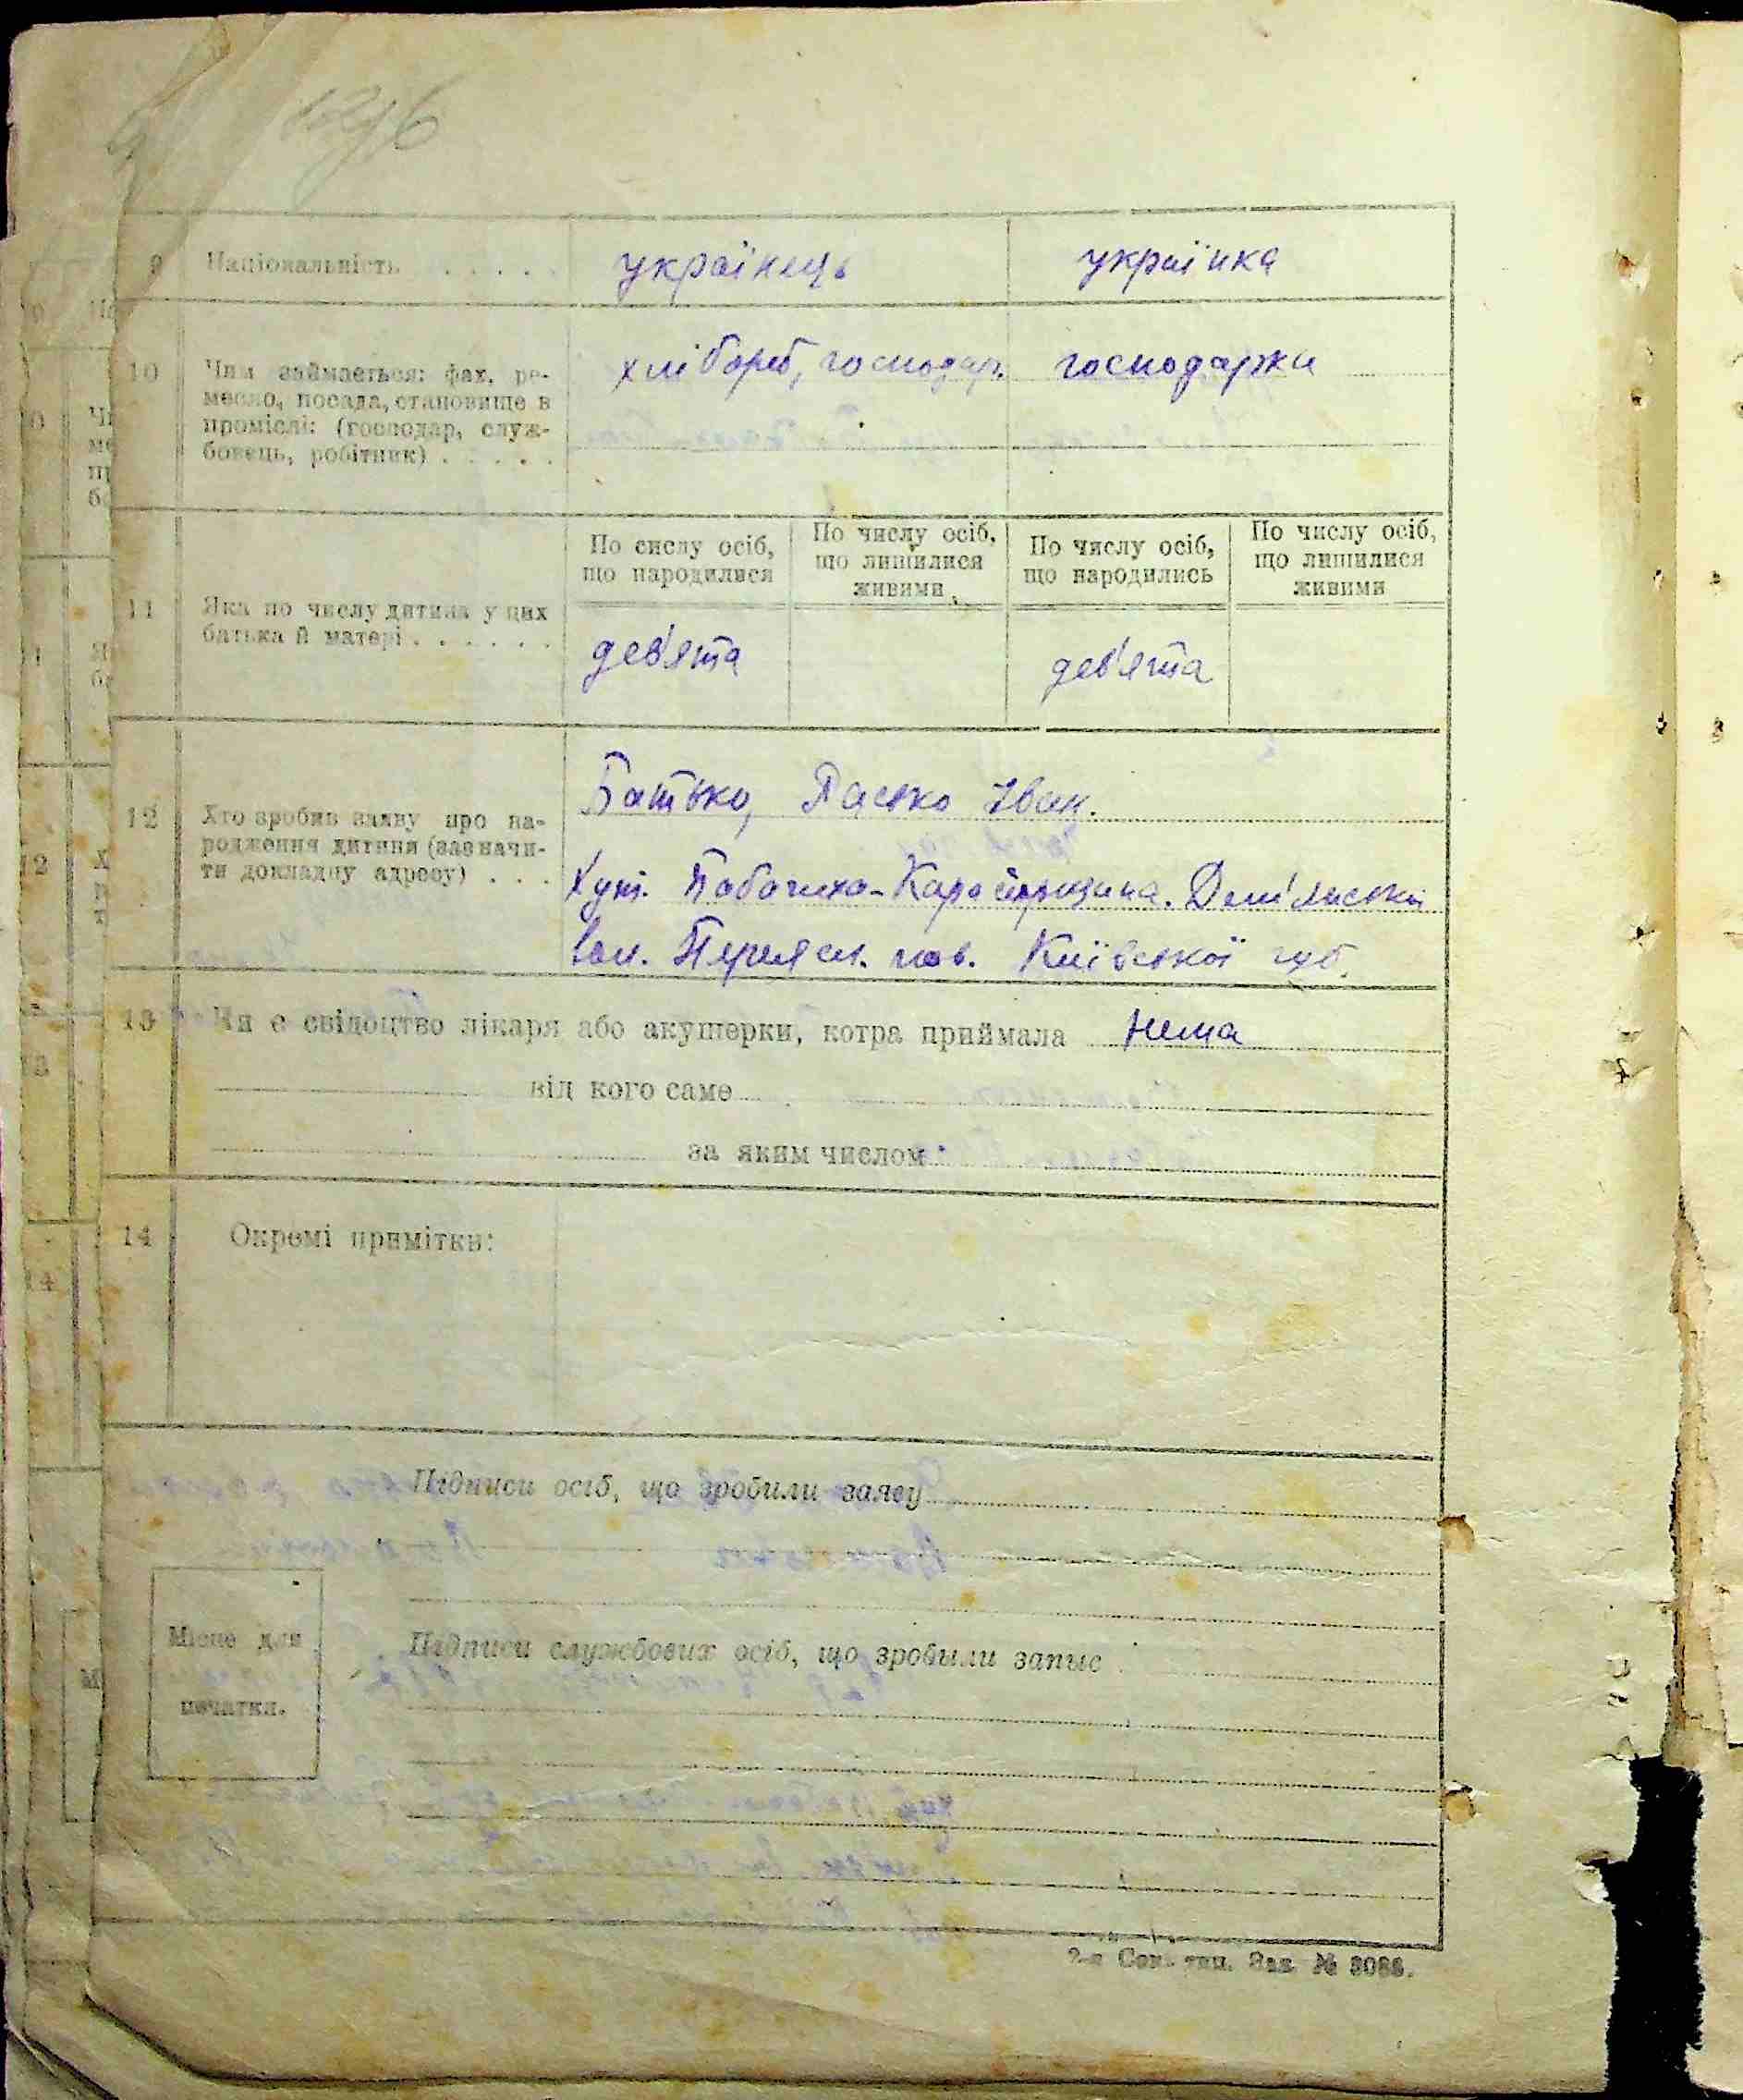 1296
9 Національність . . . . . українець українка
10 Чим займається: фах, ре-
месло, посада, становище в
промислі: (господар, служ-
бовець, робітник) . . . . .
хлібороб, господар. господарка
11 Яка по числу дитина у цих
батька й матері . . . . . .
По сислу осіб,
що народилися
По числу осіб,
що лишилися
живими
По числу осіб,
що народились
По числу осіб,
що лишилися
живими
дев'ята дев'ята
12 Хто зробив заяву про на-
родження дитини (зазначи-
ти докладну адресу) . . .
Батько, Пасько Іван.
Хут. Бабачиха-
вол. Переясл. пов. Київської губ.
13 Чи є свідоцтво лікаря або акушерки, котра приймала нема
від кого саме
за яким числом
14 Окремі примітки:
Підписи осіб, що зробили заяву
Місце для
печатки.
Підписи службових осіб, що зробыли запис
2-а Сов. тип. Зак. № 3086.